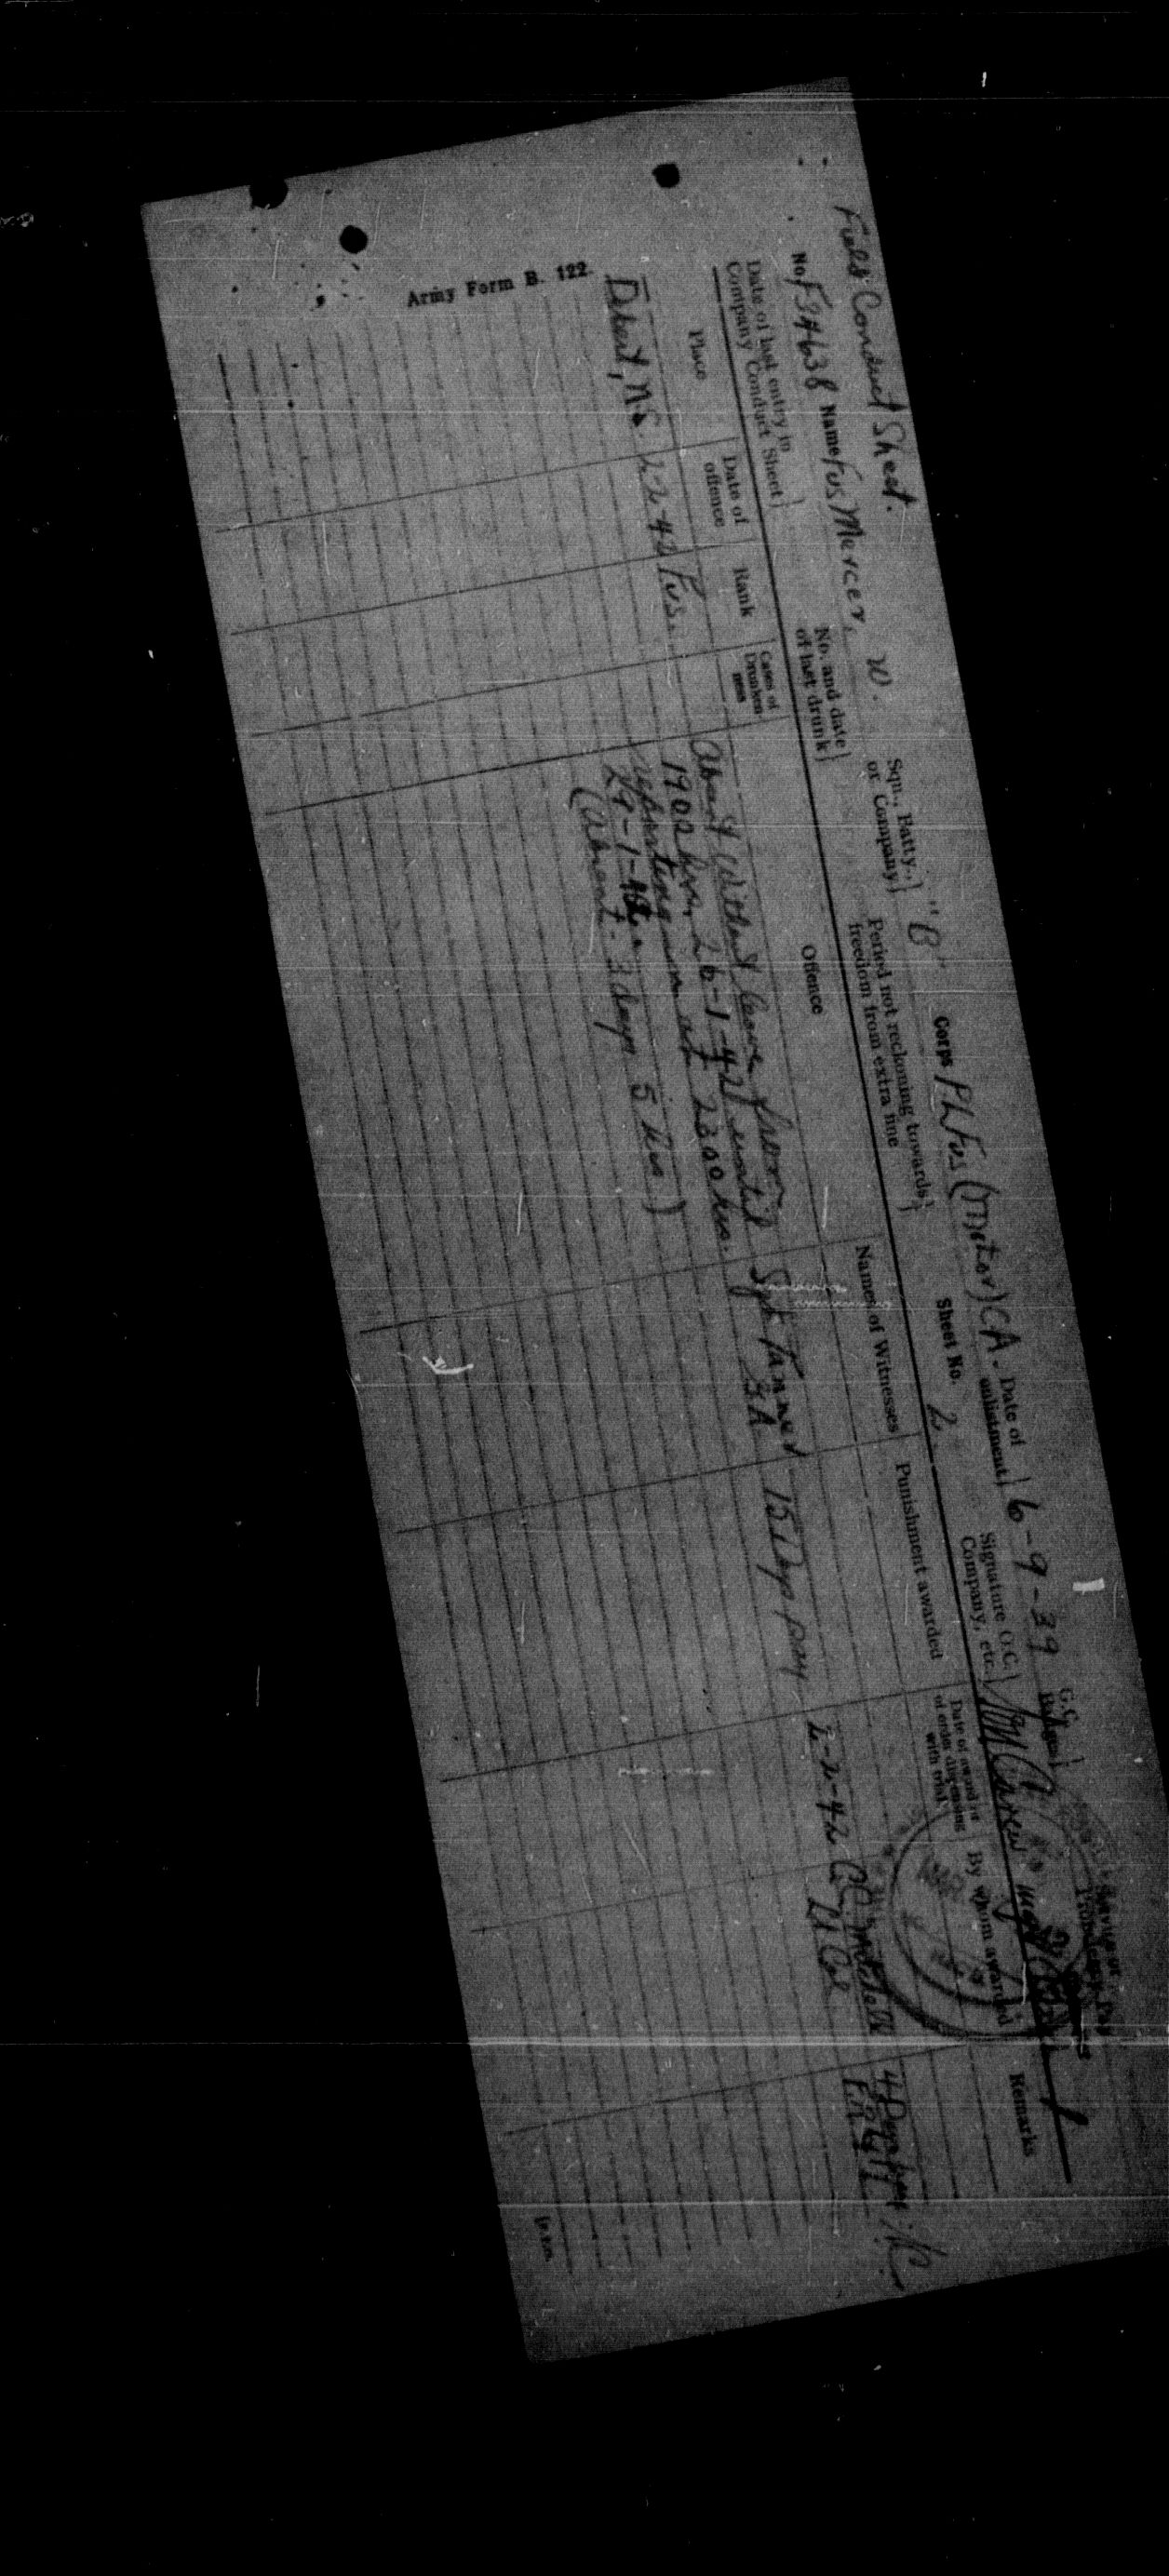 Field Conduct Sheet.
No. F34638 Name Fus Mercer, W. Squ., Batty., or Company} "B" Corps PLFus (Motor) CA. Date of enlistment} 6-9-39 G.C. Badges}
Date of last entry in Company Conduct Sheet} No. and date of last drunk} Period not reckoning towards freedom from extra fine} Sheet No. 2 Signature O.C. Company, etc.}
Place Date of offence Rank Cases of Drunken-ness Offence Names of Witnesses Punishment awarded Date of award or of order dispensing with trial By whom awarded Remarks
Debert, N.S. 2-2-42 Fus. Absent without leave from Sgt Tanner 15 Days pay 2-2-42
1900 hrs, 26-1-42 until Lt Col
reporting in at 2300 hrs.
29-1-42.
(Absent 3 days 5 hrs)
Army Form B. 122.